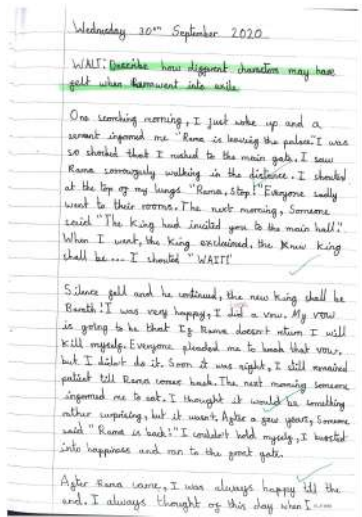 Wednesday 30th September 2020
WALT: Describe how different characters may have
felt when Rama went into exile
One scorching morning, I just woke up and a
servant informed me "Rama is leaving the palace". I was
so shocked that I rushed to the main gate. I saw
Rama sorrowgully walking in the distance. I shouted
at the top of my lungs "Rama, Stop!" Everyone sadly
went to their rooms. The next morning, Someone
said "The king had invited you to the main hall".
When I went, the King exclaimed, the new king
shall be... I shouted "WAIT!"
Silence fell and he continued, the new king shall be
Barath! I was very happy, I did a vow. My vow
is going to be that If Rama doesn't return I will
kill myself. Everyone pleaded me to break that vow,
but I didn't do it. Soon it was night, I still remained
patient till Rama comes back. The next morning someone
informed me to eat. I thought it would be something
rather surprising, but it wasn't. After a few years, Someone
said "Rama is back!" I couldn't hold myself, I bursted
into happiness and ran to the great gate.
After Rama came, I was always happy till the
end. I always thought of this day when I